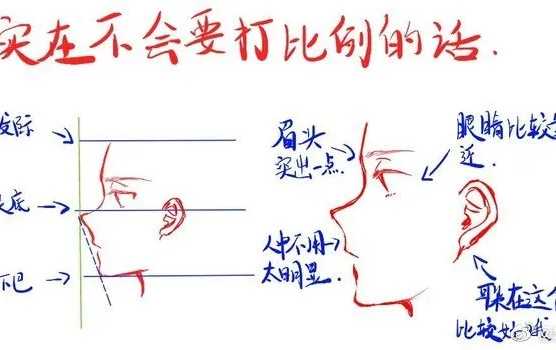 实在不会要打比例的话.
发际
鼻底
下巴
眉头
突出一点.
眼睛比较
近.
人中不用→
太明显.
耳朵在这个
比较好